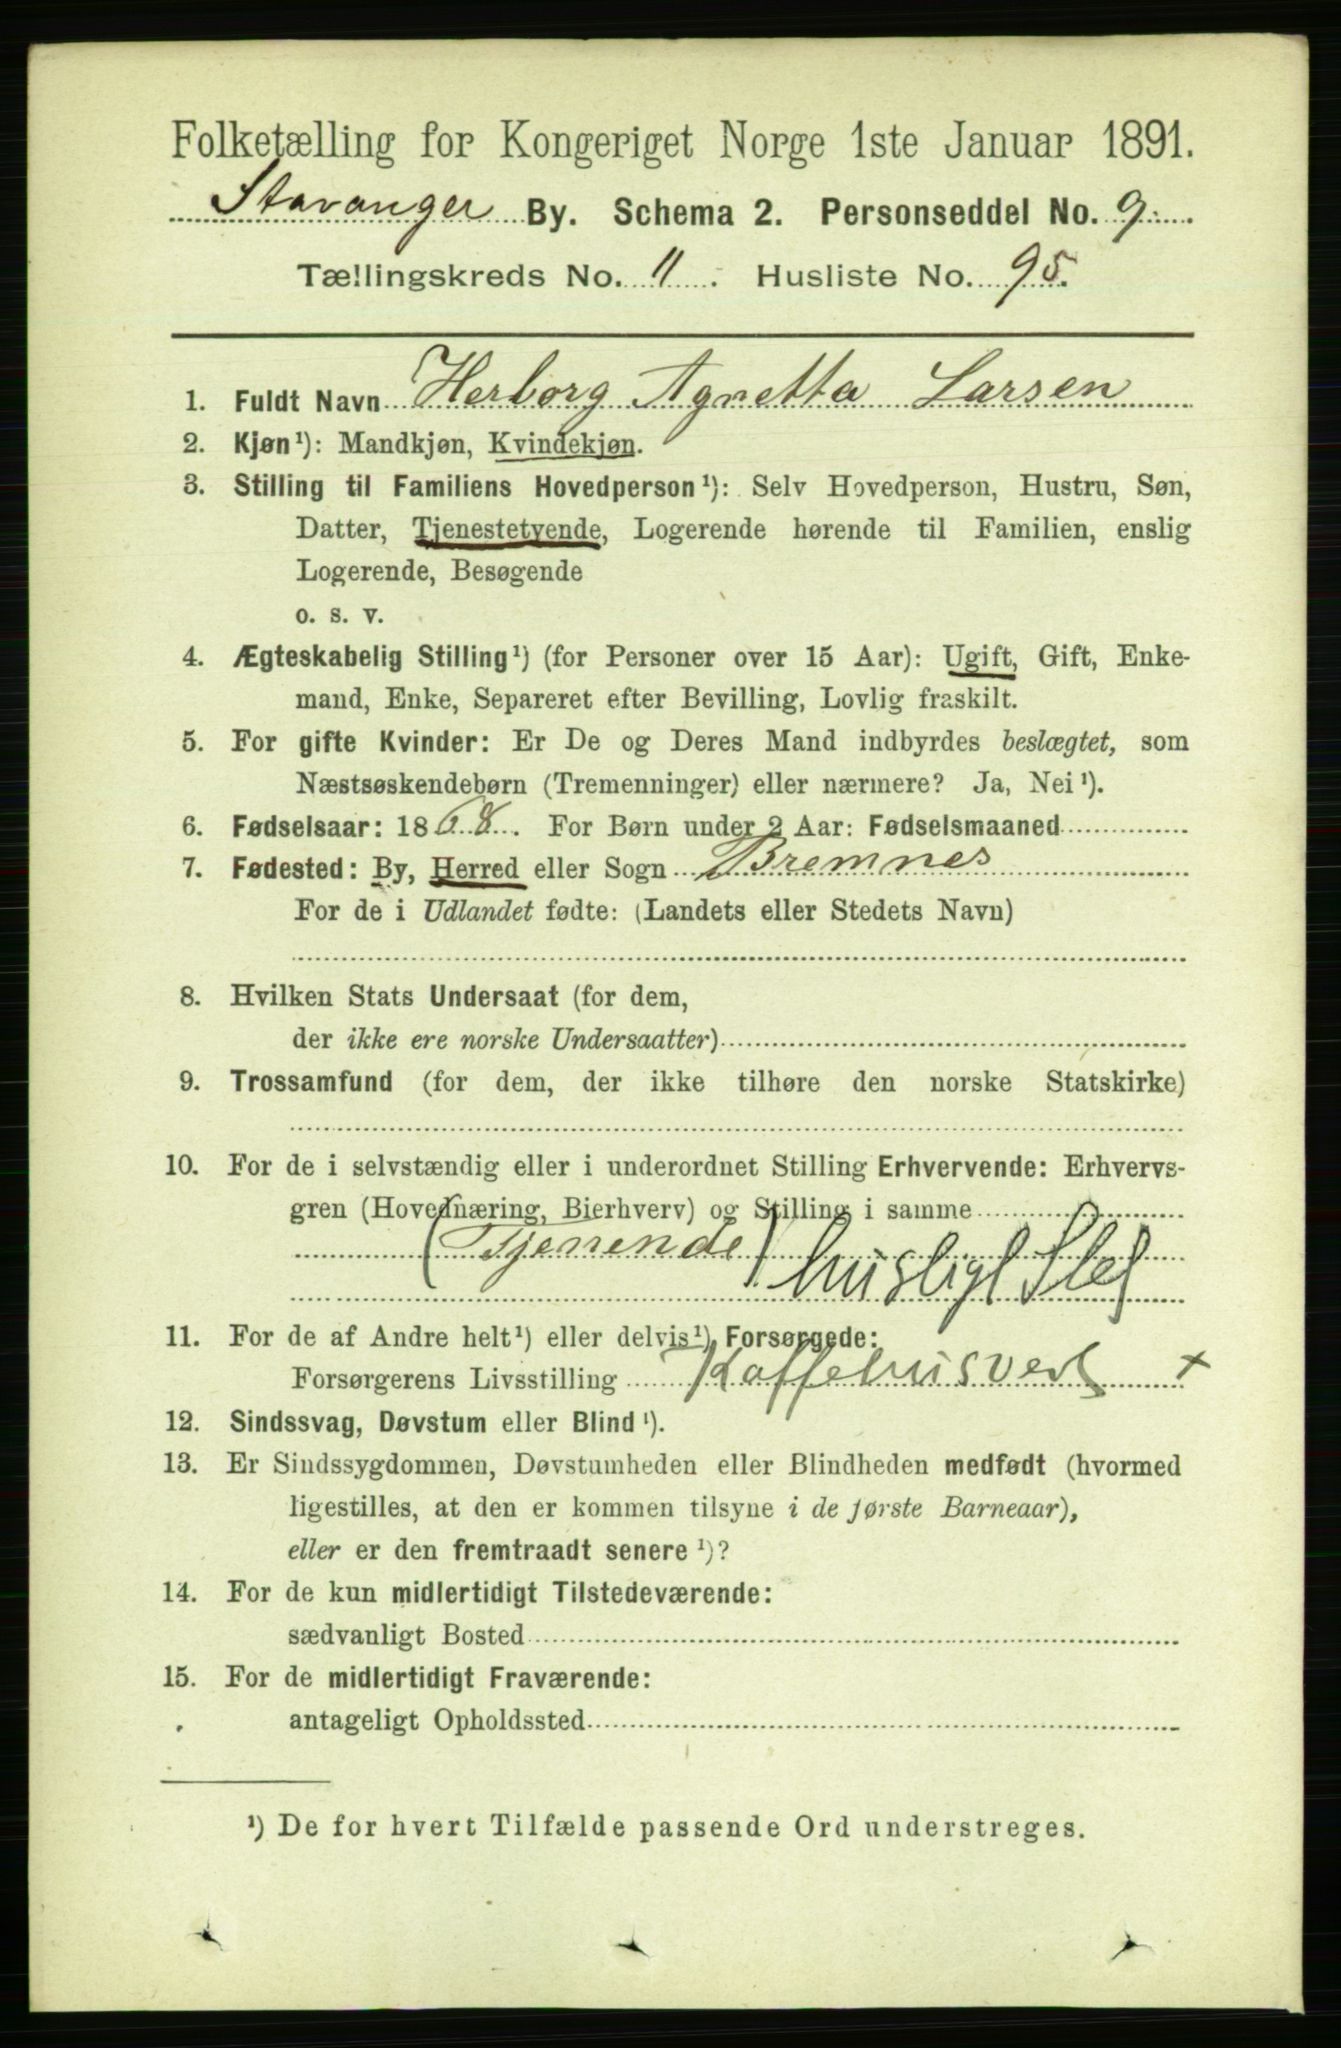 Folketælling for Kongeriget Norge 1ste Januar 1891.
Stavanger By. Schema 2. Personseddel No. 9.
Tællingskreds No. 11. Husliste No. 95.
1. Fuldt Navn Herborg Agnetta Larsen
2. Kjøn¹): Mandkjøn, Kvindekjøn.
3. Stilling til Familiens Hovedperson¹): Selv Hovedperson, Hustru, Søn,
Datter, Tjenestetyende, Logerende hørende til Familien, enslig
Logerende, Besøgende
o. s. v.
4. Ægteskabelig Stilling¹) (for Personer over 15 Aar): Ugift, Gift, Enke-
mand, Enke, Separeret efter Bevilling, Lovlig fraskilt.
5. For gifte Kvinder: Er De og Deres Mand indbyrdes beslægtet, som
Næstsøskendebørn (Tremenninger) eller nærmere? Ja, Nei¹).
6. Fødselsaar: 1868. For Børn under 2 Aar: Fødselsmaaned
7. Fødested: By, Herred eller Sogn Bremnes
For de i Udlandet fødte: (Landets eller Stedets Navn)
8. Hvilken Stats Undersaat (for dem,
der ikke ere norske Undersaatter)
9. Trossamfund (for dem, der ikke tilhøre den norske Statskirke)
10. For de i selvstændig eller i underordnet Stilling Erhvervende: Erhvervs-
gren (Hovednæring, Bierhverv) og Stilling i samme
(Tjenende) husligt Stel
11. For de af Andre helt¹) eller delvis¹) Forsørgede:
Forsørgerens Livsstilling Kaffehusvert x
12. Sindssvag, Døvstum eller Blind¹).
13. Er Sindssygdommen, Døvstumheden eller Blindheden medfødt (hvormed
ligestilles, at den er kommen tilsyne i de første Barneaar),
eller er den fremtraadt senere¹)?
14. For de kun midlertidigt Tilstedeværende:
sædvanligt Bosted
15. For de midlertidigt Fraværende:
antageligt Opholdssted
¹) De for hvert Tilfælde passende Ord understreges.